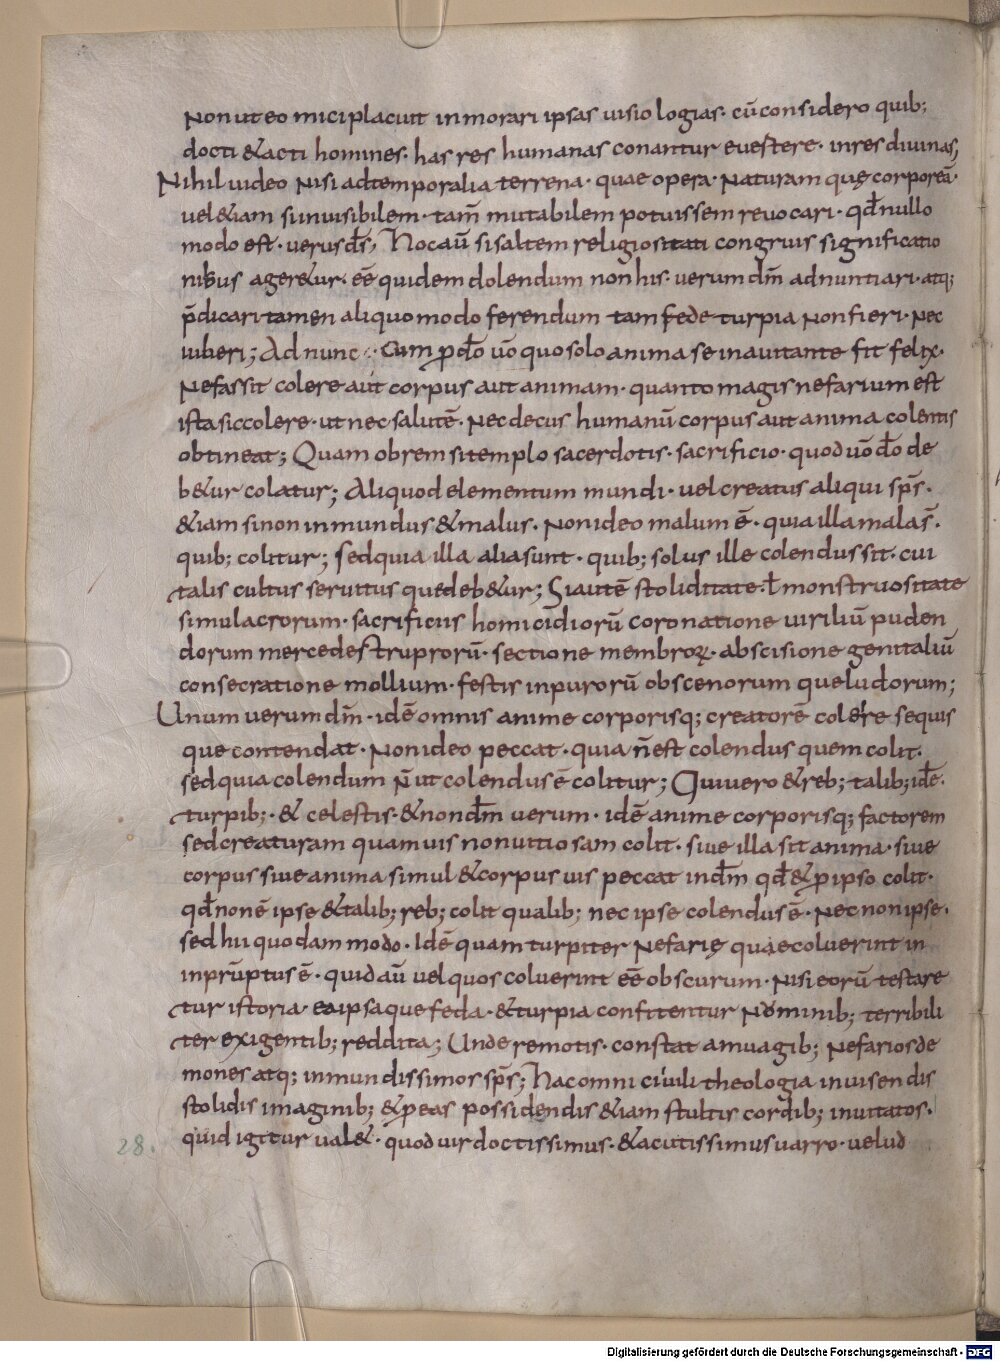 Non ut eo mici placuit inmorari ipsas uisiologias· cū considero quib;
docti &acti homines· has res humanas conantur euestere· inres diuinas,
Nihil uideo nisi adtemporalia terrena· quae opera· naturam quę corporea·
uel&iam siinuisibilem· tam̄ mutabilem potuissem reuocari· qđ nullo
modo est· uerus d̄s, hoc aū si saltem religiositati congruis significatio
nibus ager&ur· eē quidem dolendum non his· uerum dm̄ adnuntiari· atq;
p̄dicari tamen aliquo modo ferendum tam fede turpia non fieri· nec
iuberi; Ad nunc ·:· Cum ꝓ dō uō quo solo anima se inauitante fit felix·
nefas sit colere aut corpus aut animam· quanto magis nefarium est
ista sic colere· ut nec salutē· nec decus humanū corpus aut anima colentis
obtineat; Quam obrem si templo sacerdotis· sacrificio· quod uō dō de
b&ur colatur; Aliquod elementum mundi· uel creatus aliqui sp̄s·
&iam si non inmundus & malus· non ideo malum ē· quia illa mala s̄·
quib; colitur; sed quia illa alia sunt· quib; solus ille colendus sit· cui
talis cultus seruitus que deb&ur; Si autē stoliditate· ł monstruositate
simulacrorum· sacrificiis homicidiorū coronatione uiriliū puden
dorum mercede struprorū· sectione membroꝝ· abscisione genitaliū
consecratione mollium· festis inpurorū obscenorum que ludorum;
Unum uerum dm̄· idē omnis anime corporisq; creatorē colere sequis
que contendat· Non ideo peccat· quia n̄ est colendus quem colit·
sed quia colendum n̄ ut colendus ē colitur; Qui uero & reb; talib; idē·
turpib;· & celestis· & non dm̄ uerum· idē anime corporisq; factorem
sed creaturam quamuis non uitiosam colit· siue illa sit anima· siue
corpus siue anima simul & corpus uis peccat in dm̄ qđ & ꝑ ipso colit·
qđ non ē ipse & talib; reb; colit qualib; nec ipse colendus ē· Nec non ipse·
sed hii quodam modo· Idē quam turpiter nefarię quae coluerint in
inprūptus ē· quid aū uel quos coluerint eē obscurum· nisi eorū testare
tur istoria· ea ipsa que feda· & turpia confitentur nominib; terribili
ter exigentib; reddita; Unde remotis· constat amuagib; nefarios de
mones atq; inmundissimos sp̄s; hac omni ciuili theologia inuisendis
stolidis imaginib; & ꝑ eas possidendis &iam stultis cordib; inuitatos·
28. quid igitur ual&· quod uir doctissimus· & acutissimus uarro· uelud
Digitalisierung gefördert durch die Deutsche Forschungsgemeinschaft - DFG